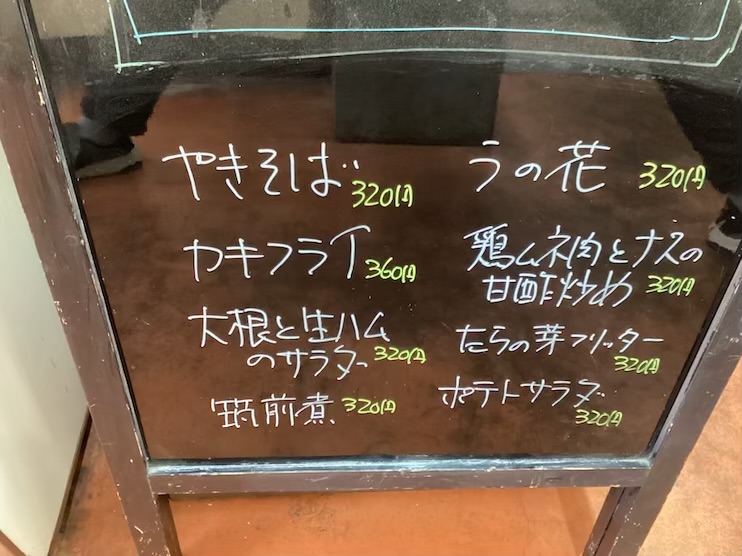 やきそば 320円
カキフライ 360円
大根と生ハム
のサラダ 320円
筑前煮 320円
うの花 320円
鶏ムネ肉とナスの
甘酢炒め 320円
たらの芽フリッター
320円
ポテトサラダ
320円